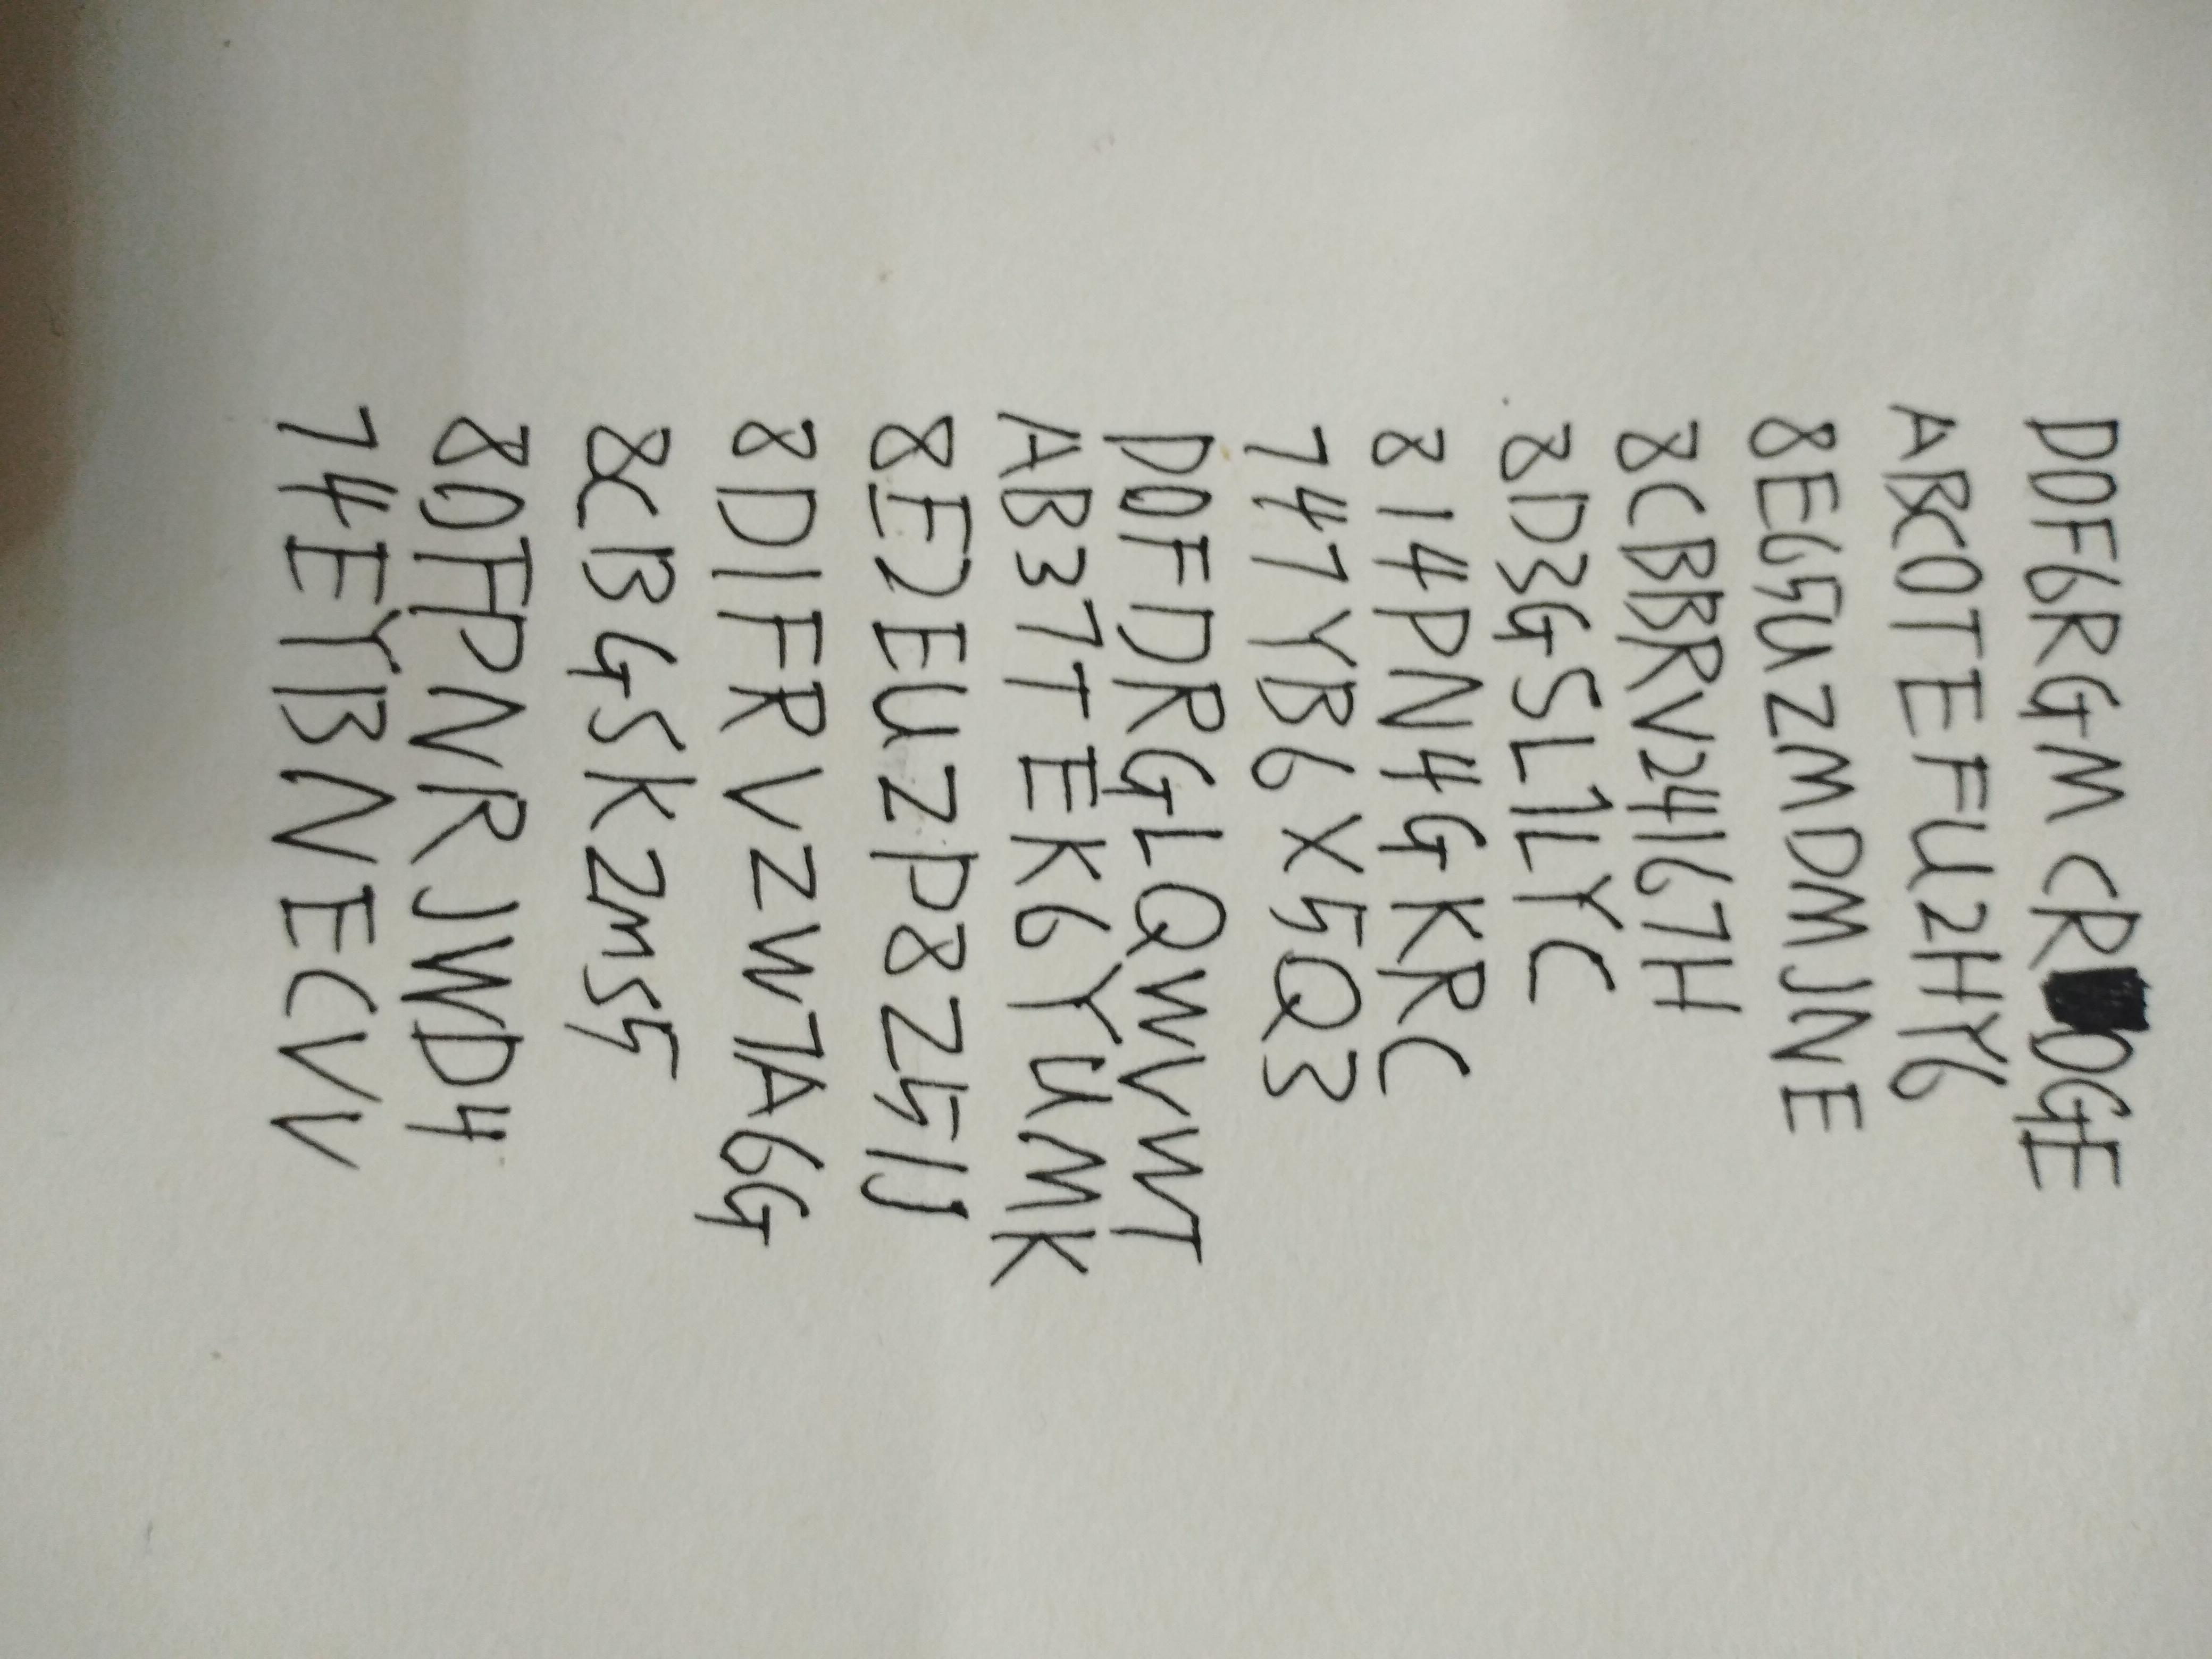 D0F6RGMCR DGE
ABC0TEFU2HY6
8EG5UZMDMJNE
8CBBRV24167H
8D3GSL1LYC
814PN4GKRC
747YB6X5Q3
D0FDRGLQWVWT
AB37TEK6YUMK
8E2EUZP8Z51J
8D1FRVZW7A6G
8CB4SK2M55
80FPNRJWD4
74EYBNECVV